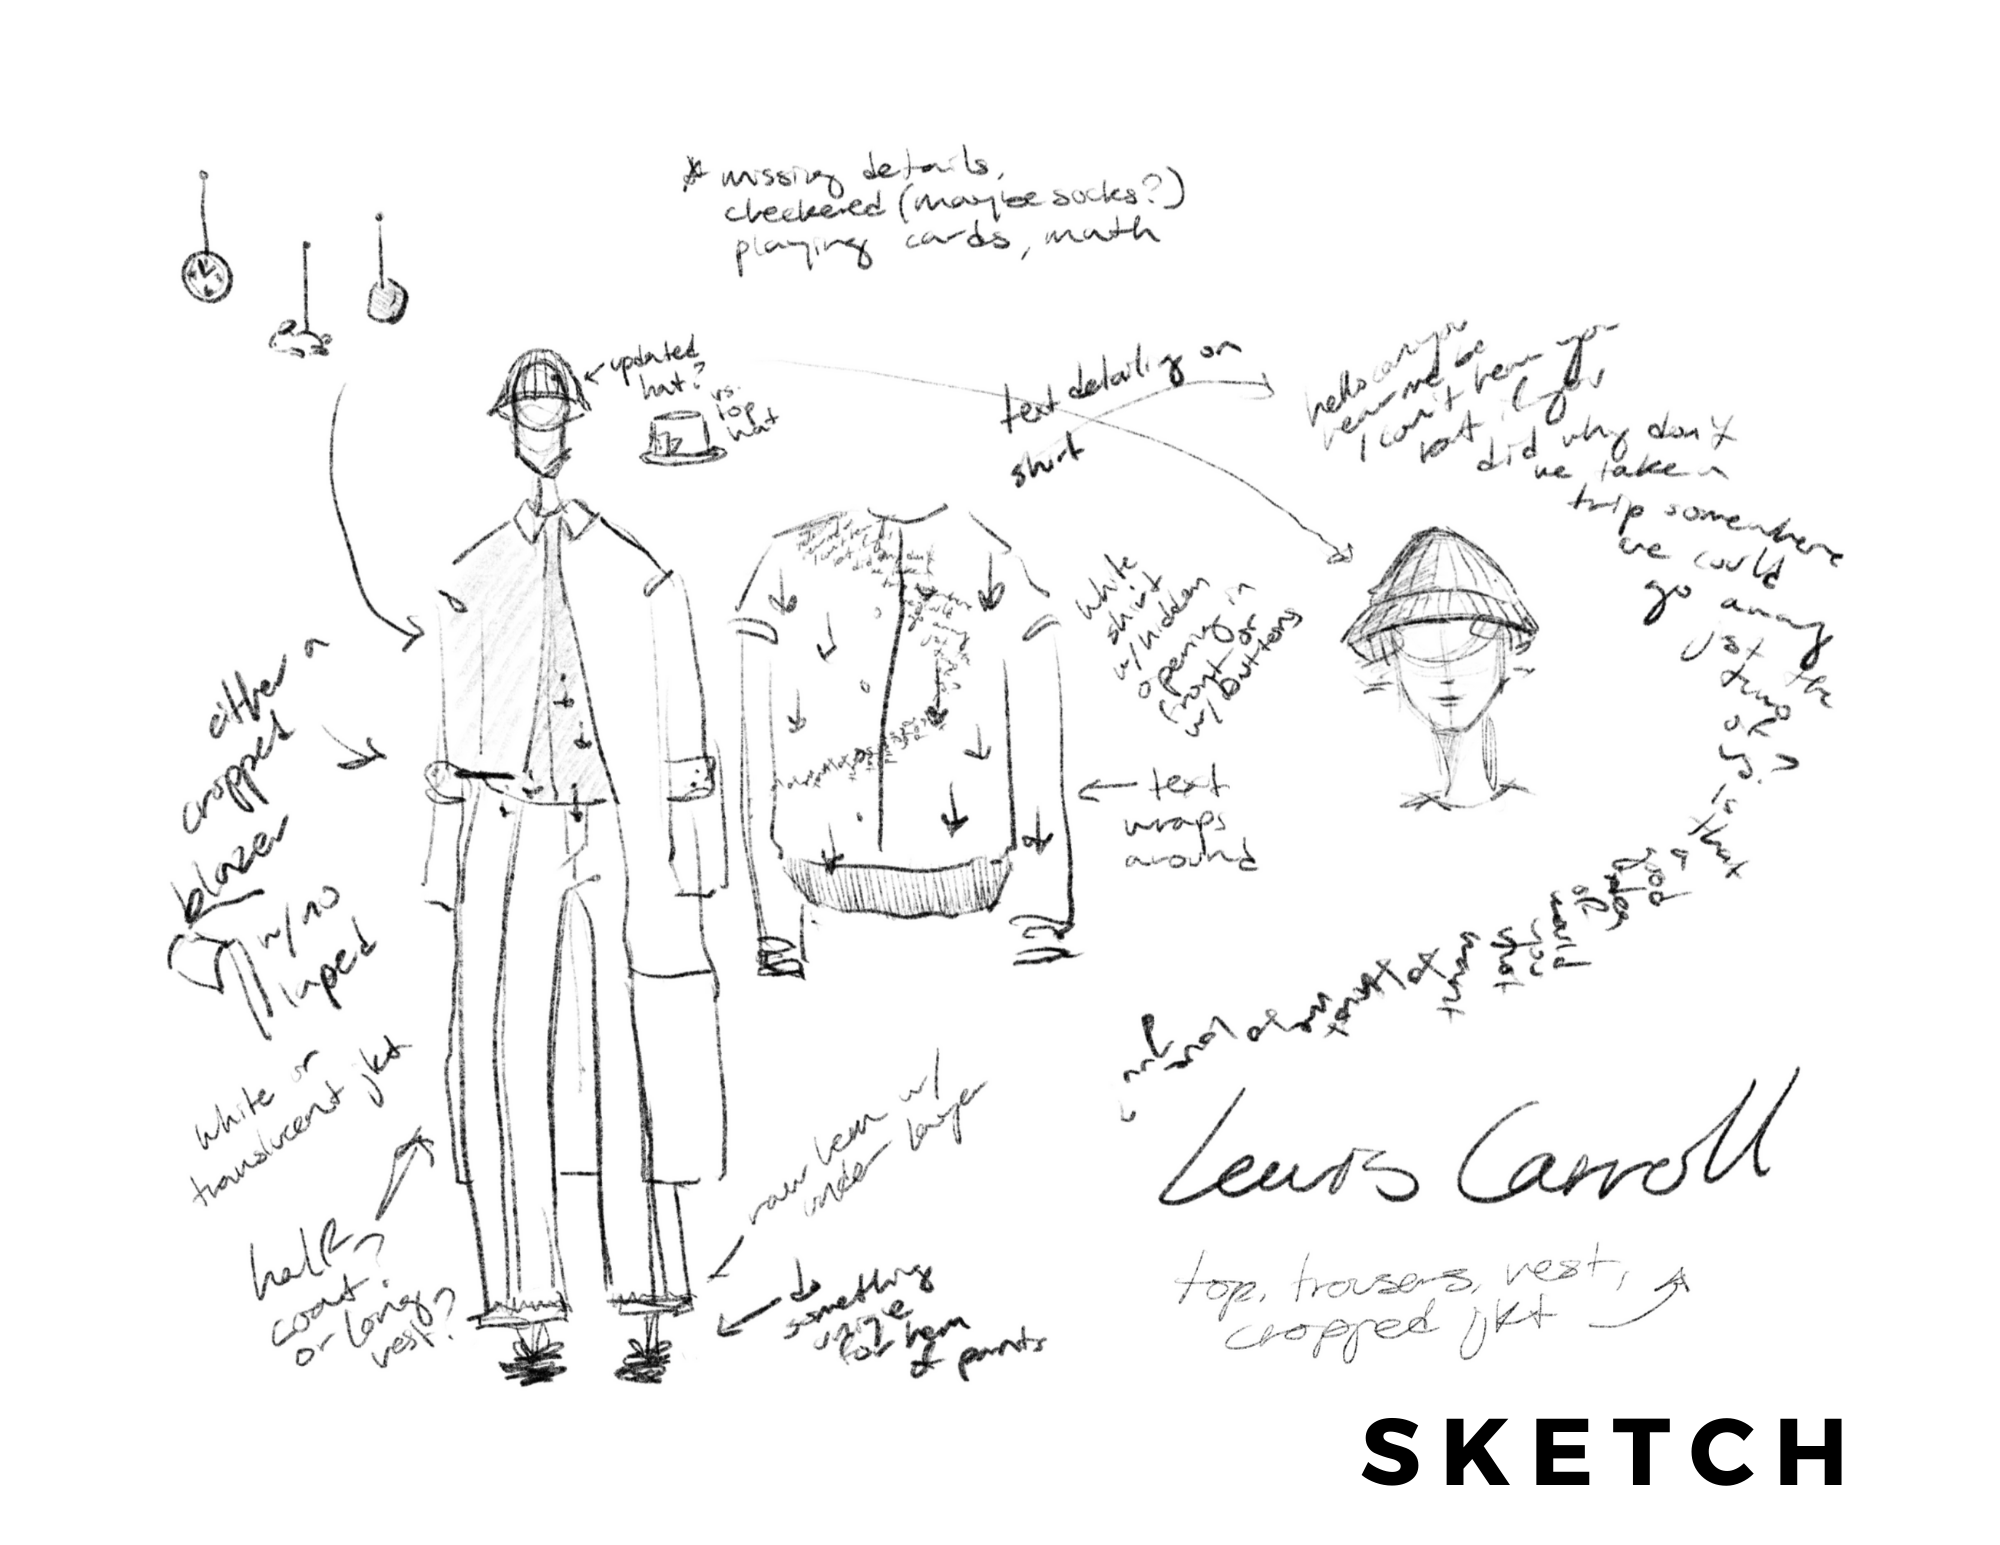 * missing details,
checkered (maybe socks?)
playing cards, math
updated
hat?
vs.
top
hat
text detailing on
shirt
hello can you
hear me be
I can't hear you
but if you
did why don't
we take a
trip somewhere
we could
go away
just the
two of
us?
is
that
a
good
or
would
you
that
white
shirt
w/hidden
opening in
front or
w/ buttons
text
wraps
around
either a
cropped
blazer
w/ no
laped
white or
translucent jkt
half
coat?
or long
vest?
raw hem w/
under layer
do
something
for hem
of pants
Lewis Carroll
top, trousers, vest,
cropped jkt
SKETCH